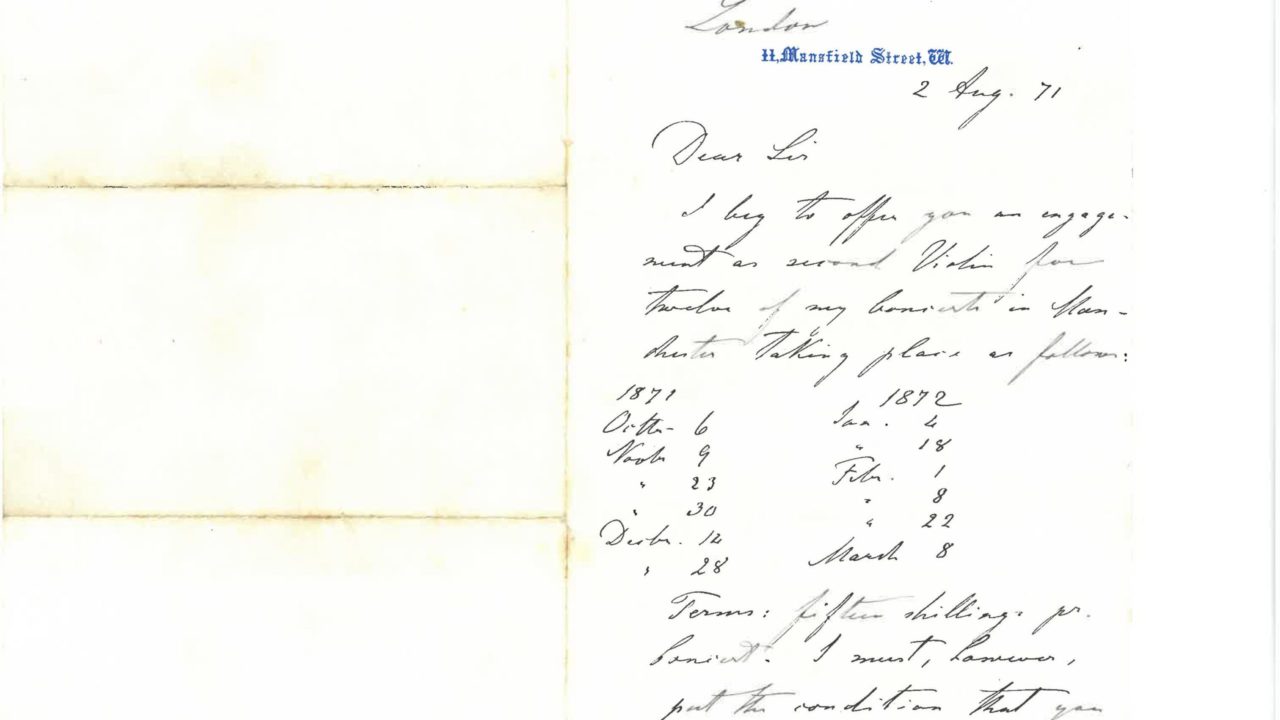 London
11, Mansfield Street, W.
2 Aug. 71
Dear Sir
I beg to offer you an engage-
ment as second Violin for
twelve of my Concerts in Man-
chester taking place as follows:
1871 1872
Octbr. 6 Jan. 4
Novbr 9 " 18
" 23 Febr. 1
" 30 " 8
Decbr. 14 " 22
" 28 March 8
Terms: fifteen shillings pr.
Concert. I must, however,
put the condition that you